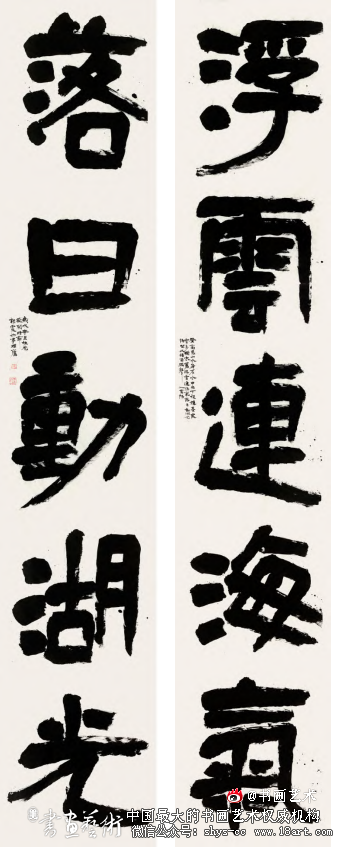 浮雲連海氣
落日動湖光
@书画艺术
書画藝術
中国最大的书画艺术权威机构
微信公众号: shys-cc www.18art.com